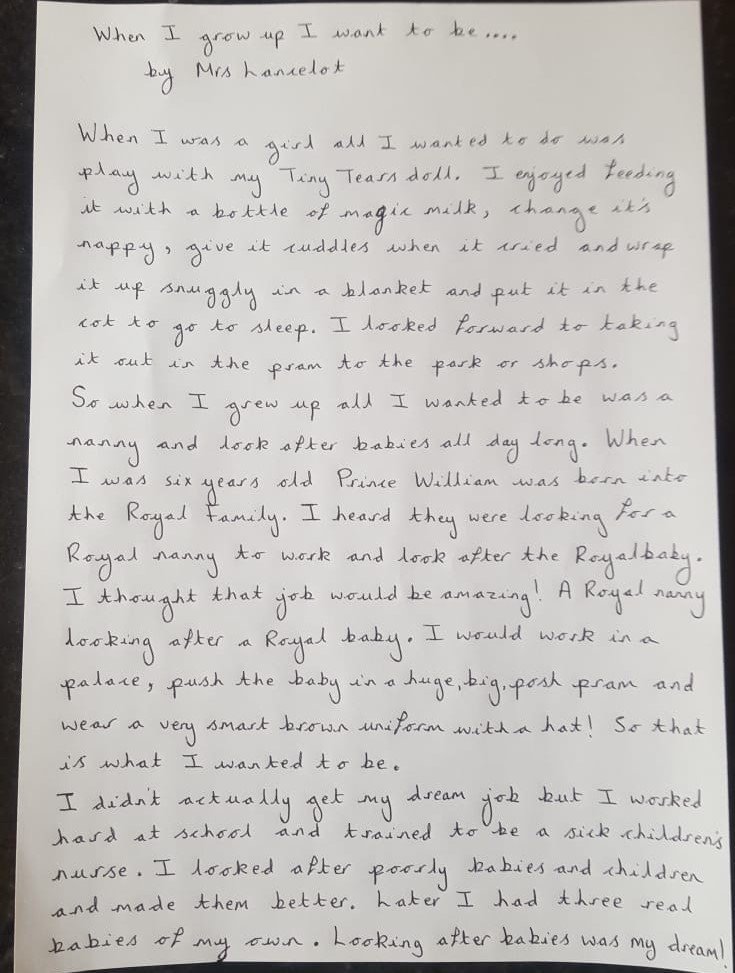 When I grow up I want to be....
by Mrs Lancelot
When I was a girl all I wanted to do was
play with my Tiny Tears doll. I enjoyed feeding
it with a bottle of magic milk, change it's
nappy, give it cuddles when it cried and wrap
it up snuggly in a blanket and put it in the
cot to go to sleep. I looked forward to taking
it out in the pram to the park or shops.
So when I grew up all I wanted to be was a
nanny and look after babies all day long. When
I was six years old Prince William was born into
the Royal Family. I heard they were looking for a
Royal nanny to work and look after the Royal baby.
I thought that job would be amazing! A Royal nanny
looking after a Royal baby. I would work in a
palace, push the baby in a huge, big, posh pram and
wear a very smart brown uniform with a hat! So that
is what I wanted to be.
I didn't actually get my dream job but I worked
hard at school and trained to be a sick children's
nurse. I looked after poorly babies and children
and made them better. Later I had three real
babies of my own. Looking after babies was my dream!